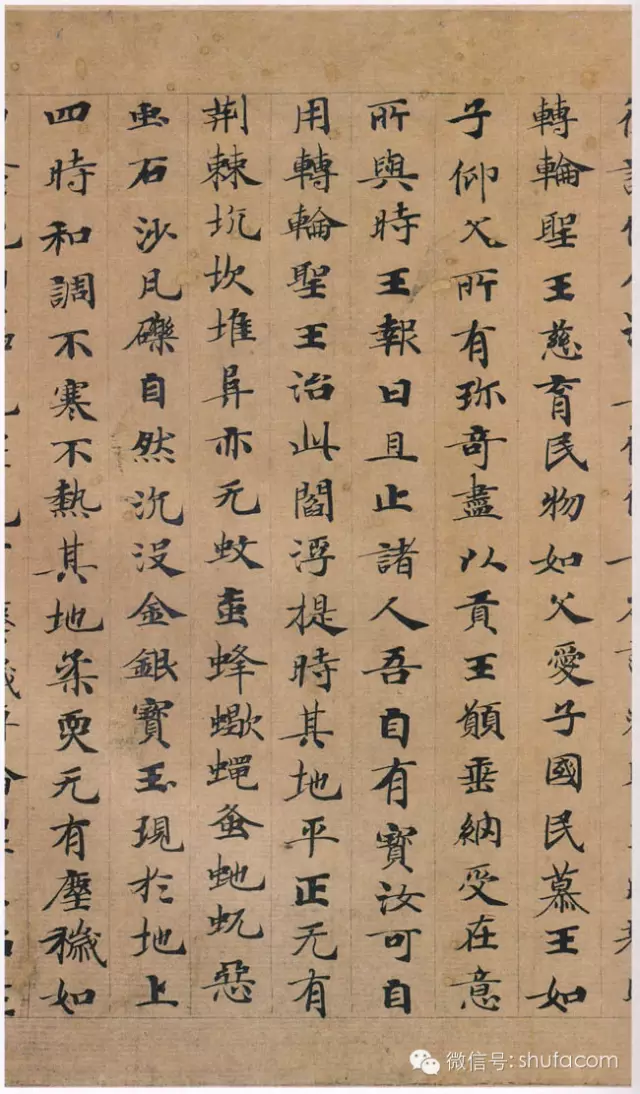 轉輪聖王慈育民物如父愛子國民慕王如
子仰父所有珎奇盡以貢王願垂納受在意
所與時王報曰且止諸人吾自有寶汝可自
用轉輪聖王治此閻浮提時其地平正无有
荆棘坑坎堆阜亦无蚊虻蜂蠍蠅蚤虵蚖惡
虫石沙瓦礫自然沉没金銀寶玉現於地上
四時和調不寒不熱其地柔耎无有塵穢如
微信号: shufacom